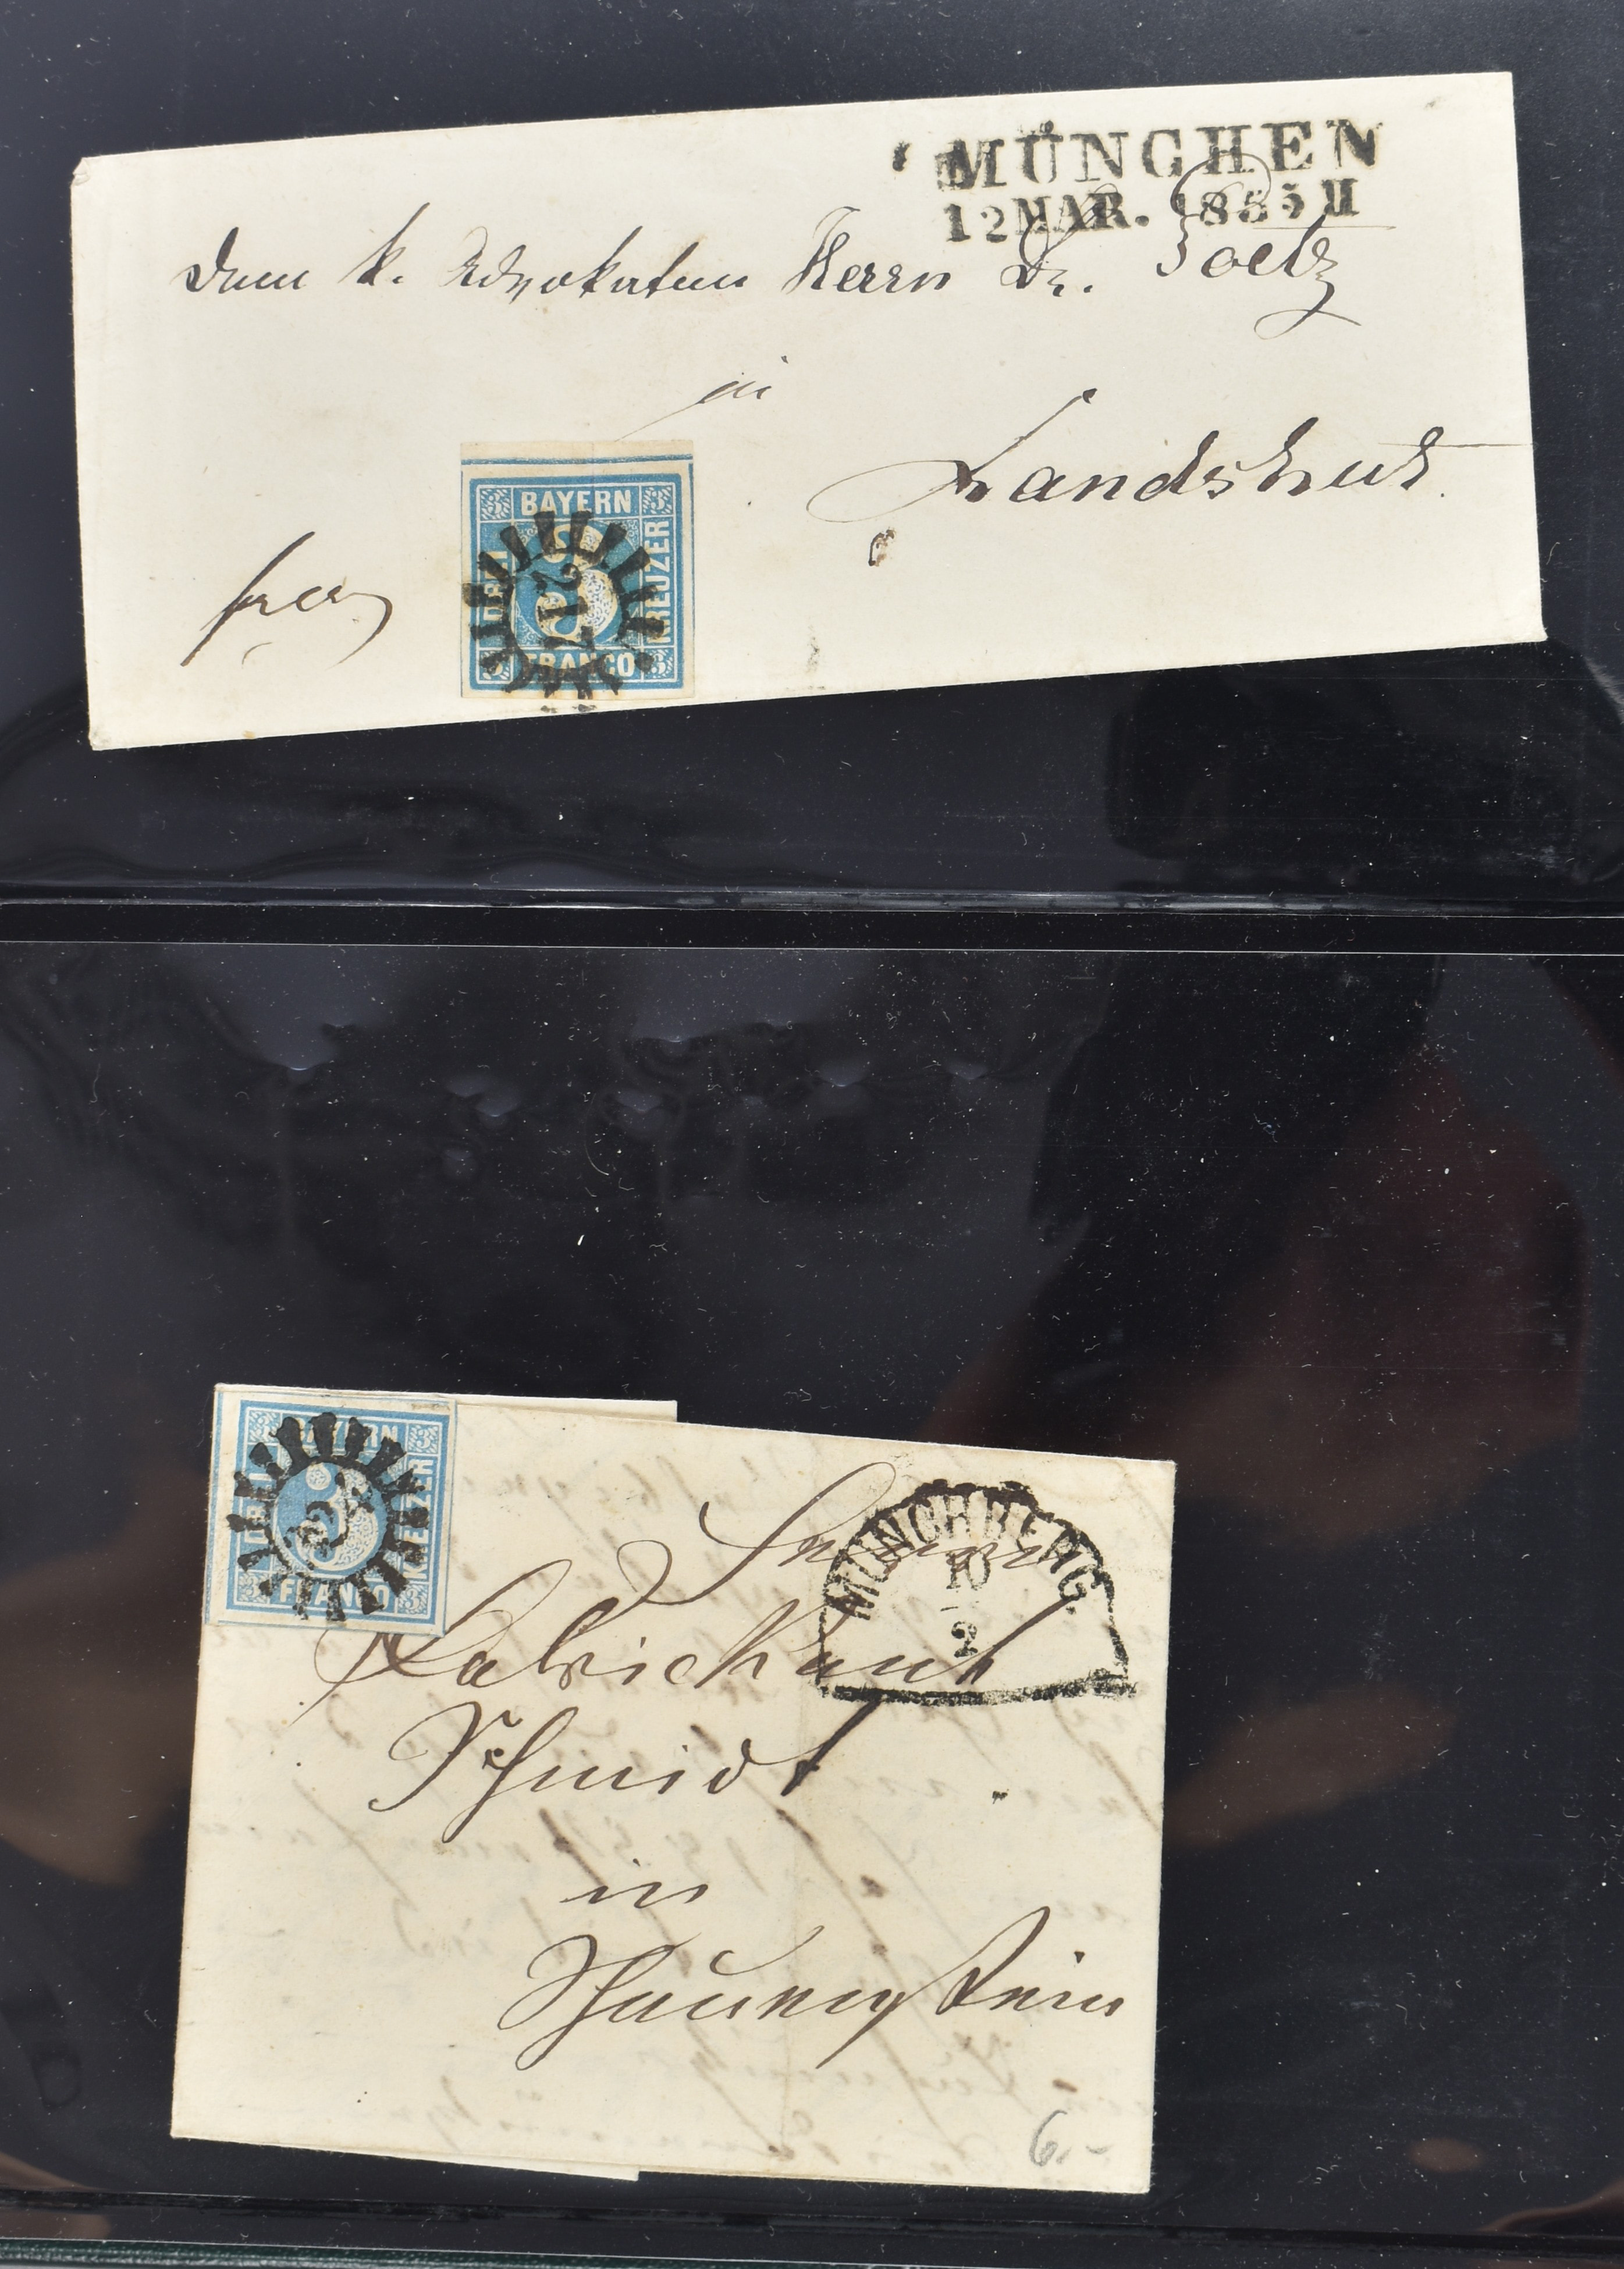 MÜNCHEN
12 MAR. 1855 II
Dem k. Advokaten Herrn Dr.
in
Landshut.
BAYERN
DREI
KREUZER
FRANCO
3
217
BAYERN
DREI
KREUZER
FRANCO
3
MÜNCHBERG
10
2
Herrn
Fabrickant
Schmidt
in
Schauenstein
6.-